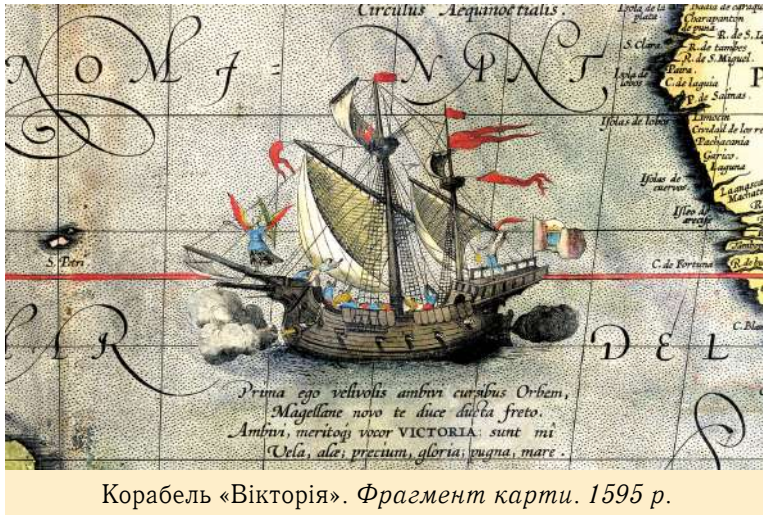 Circulus Aequinoctialis.
Charapanton
de puna
R. de tambes
R. de S. Miguel.
S. Clara
Paita.
C. de laguia
P. de Salinas.
Isolas de lobos
Limocin
Pachacama
Garico.
Laguna
Isolas de
cuervos
NOMI=NANT
S. Petri
C. de Fortuna
AR DEL
Prima ego velivolis ambivi cursibus Orbem,
Magellane novo te duce ducta freto.
Ambivi, meritoq; vocor VICTORIA: sunt mî
Vela, alæ; precium, gloria; pugna, mare.
Корабель «Вікторія». Фрагмент карти. 1595 р.